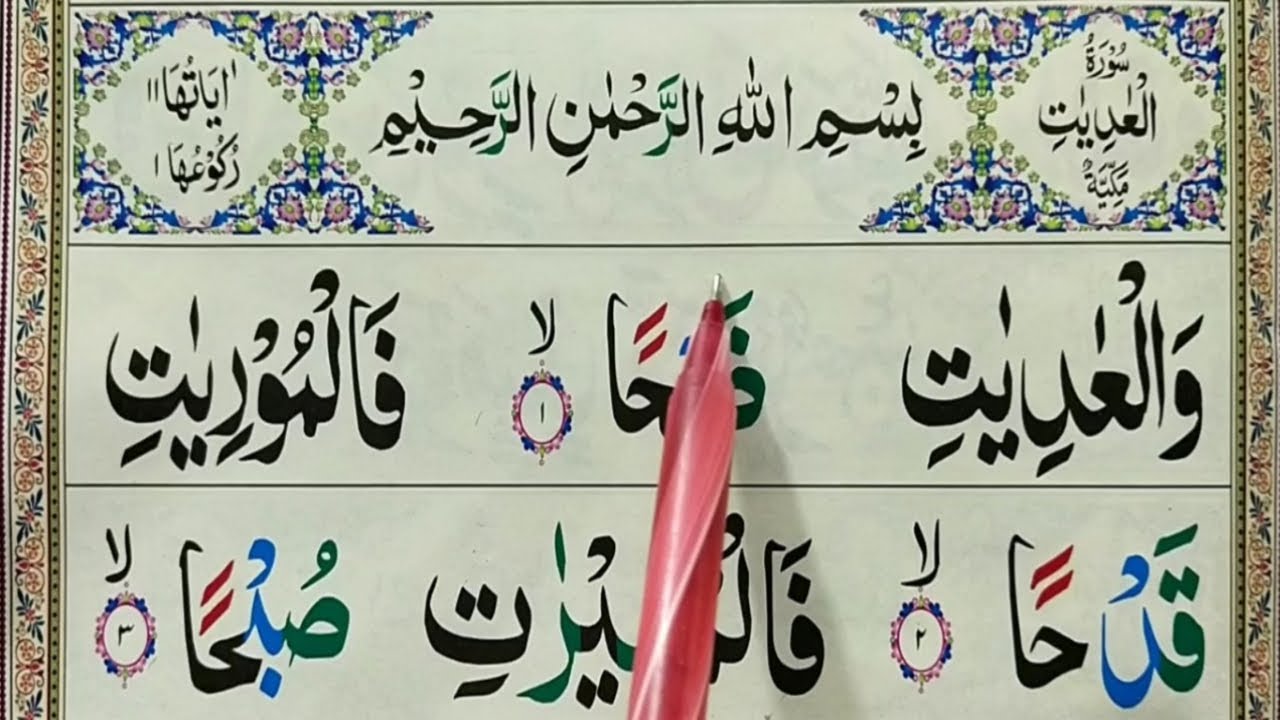 سُوْرَةُ
الْعٰدِيٰتِ
مَكِّيَّةٌ
بِسْمِ اللّٰهِ الرَّحْمٰنِ الرَّحِيْمِ
اٰيَاتُهَا ١١
رُكُوْعُهَا ١
وَالْعٰدِيٰتِ ۙ ١ فَالْمُوْرِيٰتِ
قَدْحًا ۙ ٢ صُبْحًا ۙ ٣